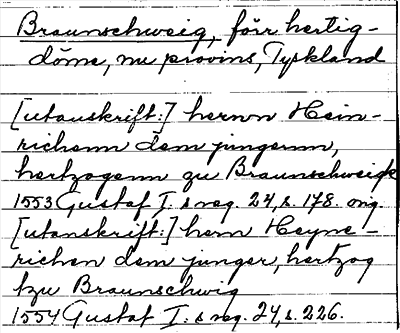 Braunschweig, förr hertig-
döme, nu provins, Tyskland
[utanskrift:] hernn Hein-
richenn dem jungernn,
hertzogenn zu Braunschweigk
1553 Gustaf I. s reg. 24, s. 178. orig.
[utanskrift:] hern Heyne-
richen dem junger, hertzog
tzu Braunschwig
1554 Gustaf I. s reg. 24, s. 226.